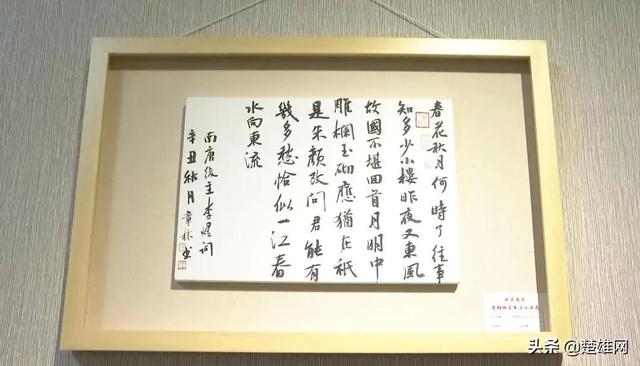 春花秋月何時了往事
知多少小樓昨夜又東風
故國不堪回首月明中
雕欄玉砌應猶在祇
是朱顏改問君能有
幾多愁恰似一江春
水向東流
南唐後主李煜詞
辛丑秋月章林书
头条@楚雄网